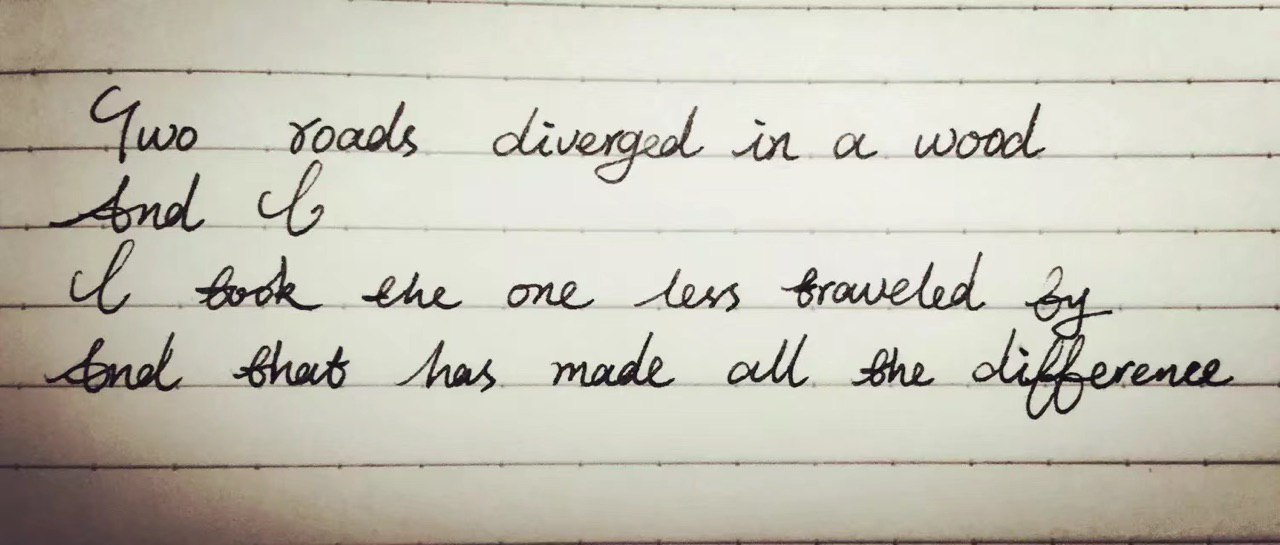 Two roads diverged in a wood
And I
I took the one less traveled by
And that has made all the difference